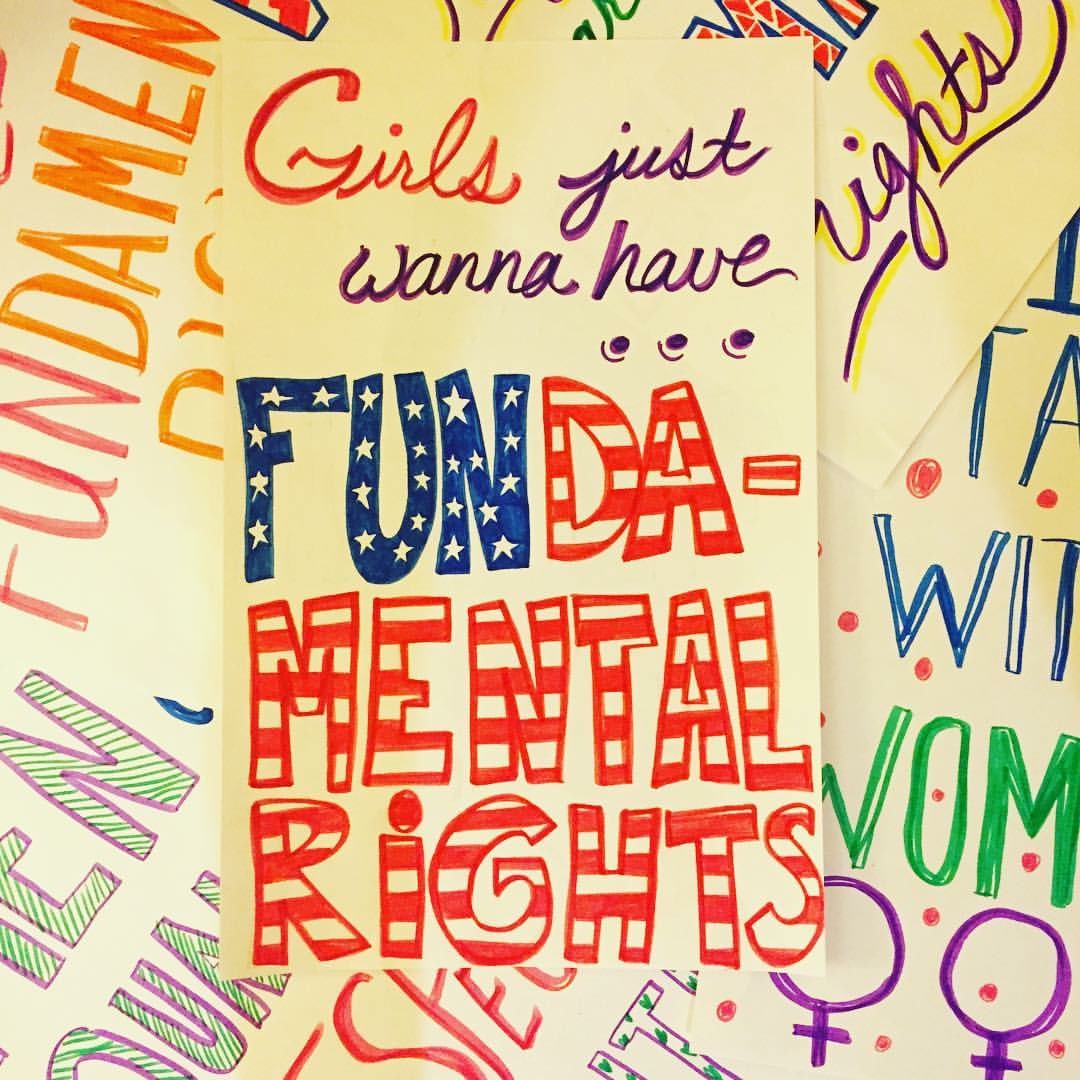 Girls just
wanna have
...
FUNDA-
MENTAL
RiGHTS
FUNDAMEN
rights
WIT
WOM